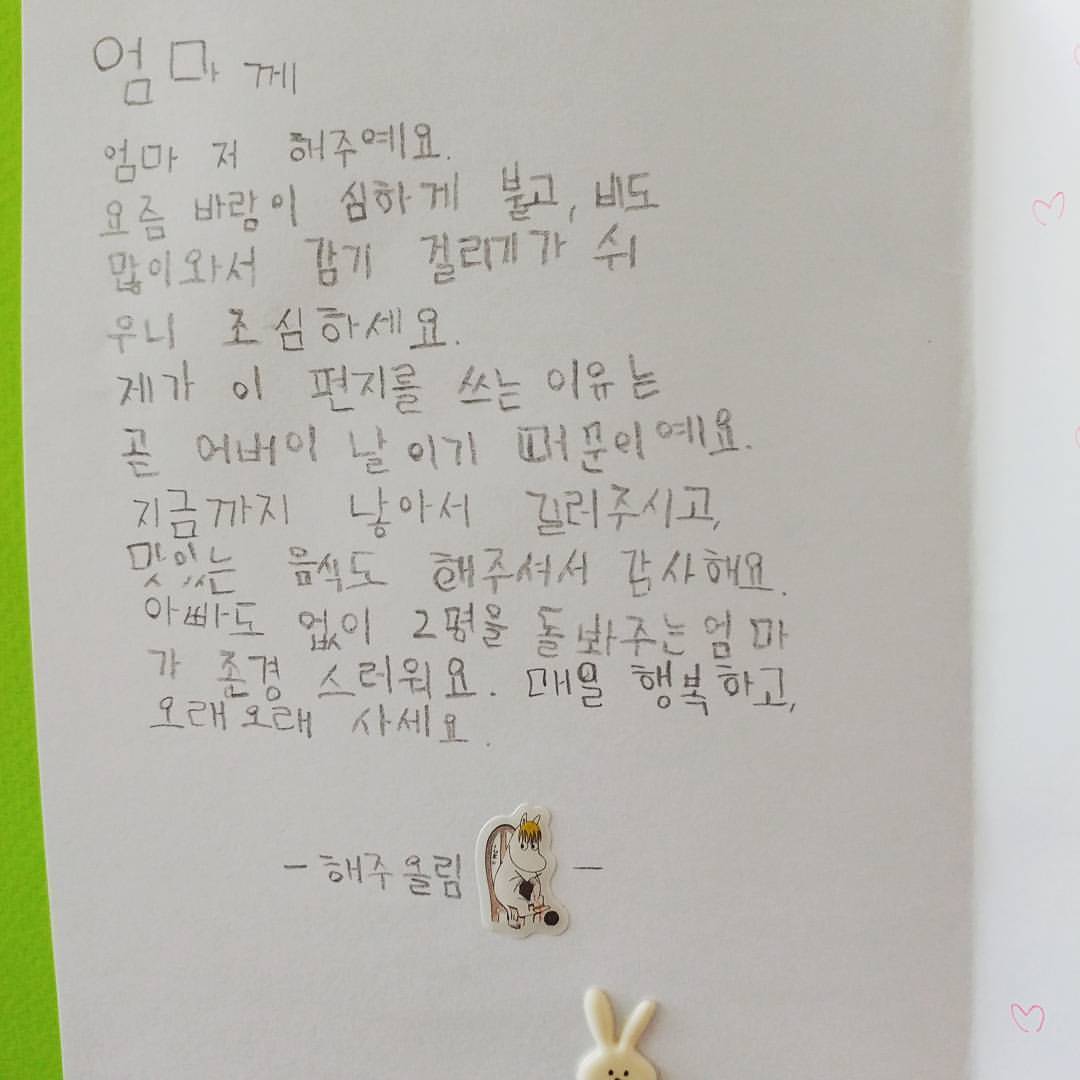 엄마께
엄마 저 해주예요.
요즘 바람이 심하게 불고, 비도
많이와서 감기 걸리기가 쉬
우니 조심하세요.
제가 이 편지를 쓰는 이유는
곧 어버이 날 이기 때문이예요.
지금까지 낳아서 길러주시고,
맛있는 음식도 해주셔서 감사해요.
아빠도 없이 2명을 돌봐주는 엄마
가 존경 스러워요. 매일 행복하고,
오래오래 사세요.
- 해주올림 -